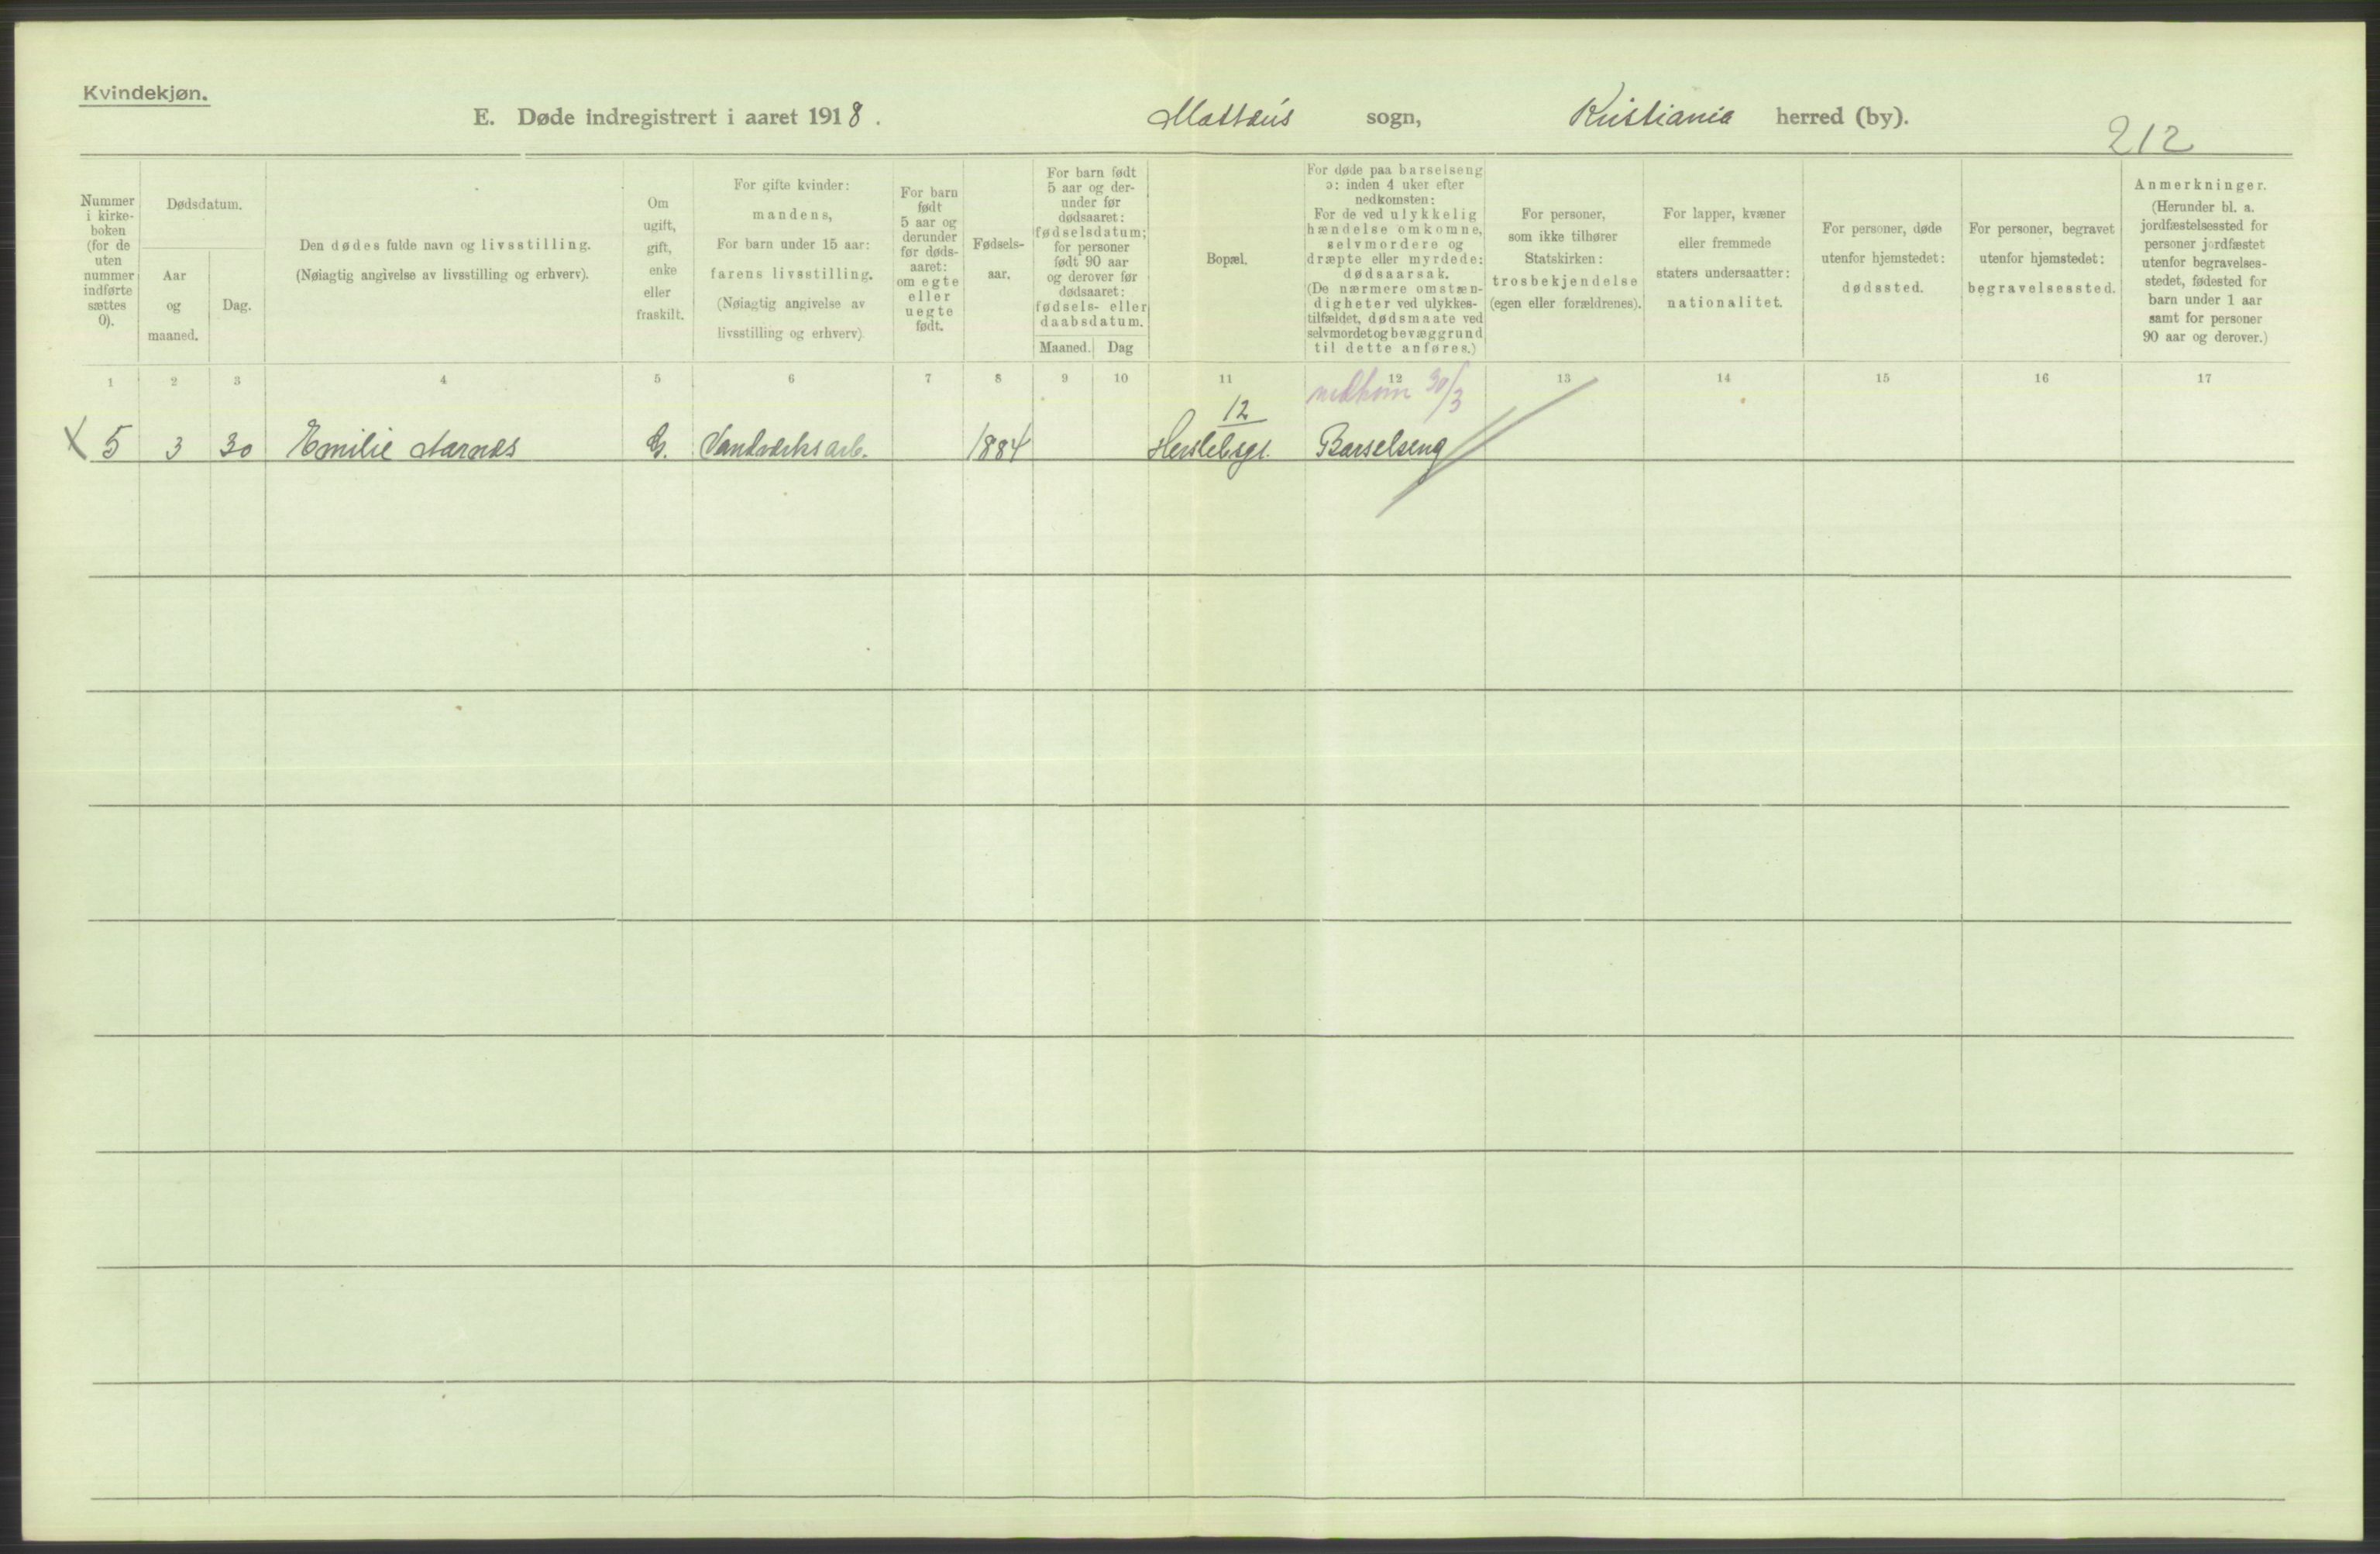 Kvindekjøn.
E. Døde indregistrert i aaret 1918. Mattæus sogn, Kristiania herred (by).
212
Nummer
i kirke-
boken
(for de
uten
nummer
indførte
sættes
0).
Dødsdatum.
Aar
og
maaned.
Dag.
Den dødes fulde navn og livsstilling.
(Nøiagtig angivelse av livsstilling og erhverv).
Om
ugift,
gift,
enke
eller
fraskilt.
For gifte kvinder:
mandens,
For barn under 15 aar:
farens livsstilling.
(Nøiagtig angivelse av
livsstilling og erhverv)
For barn
født
5 aar og
derunder
før døds-
aaret:
om egte
eller
uegte
født.
Fødsels-
aar.
For barn født
5 aar og der-
under før
dødsaaret:
fødselsdatum;
for personer
født 90 aar
og derover før
dødsaaret:
fødsels- eller
daabsdatum.
Maaned. Dag
Bopæl.
For døde paa barselseng
ɔ: inden 4 uker efter
nedkomsten:
For de ved ulykkelig
hændelse omkomne,
selvmordere og
dræpte eller myrdede:
dødsaarsak.
(De nærmere omstæn-
digheter ved ulykkes-
tilfældet, dødsmaate ved
selvmordet og bevæggrund
til dette anføres.)
For personer,
som ikke tilhører
Statskirken:
trosbekjendelse
(egen eller forældrenes).
For lapper, kvæner
eller fremmede
staters undersaatter:
nationalitet.
For personer, døde
utenfor hjemstedet:
dødssted.
For personer, begravet
utenfor hjemstedet:
begravelsessted.
Anmerkninger.
(Herunder bl. a.
jordfæstelsessted for
personer jordfæstet
utenfor begravelses-
stedet, fødested for
barn under 1 aar
samt for personer
90 aar og derover.)
1 2 3 4 5 6 7 8 9 10 11 12 13 14 15 16 17
nedkom 30/3
12
X 5 3 30 Emilie Aarnæs G. Vandværksarb. 1884 Herslebsgt. Barselseng